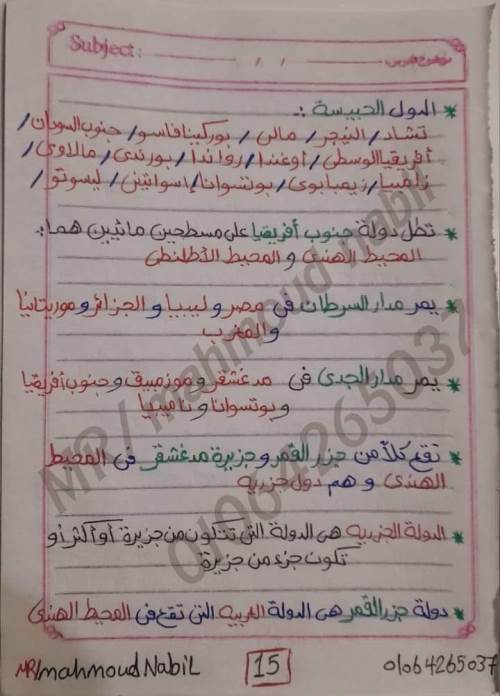 Subject:
موضوع الدرس
/ /
* الدول الحبيسة :.
تشاد / النيجر / مالى / بوركينافاسو / جنوب السودان /
أفريقيا الوسطى / أوغندا / رواندا / بورندى / مالاوى /
زامبيا / زيمبابوى / بوتسوانا / إسواتينى / ليسوتو /
* تطل دولة جنوب أفريقيا على مسطحين مائيين هما:.
المحيط الهندى و المحيط الأطلنطى
* يمر مدار السرطان فى مصر و ليبيا و الجزائر و موريتانيا
والمغرب
* يمر مدار الجدى فى مدغشقر و موزمبيق و جنوب أفريقيا
و بوتسوانا و ناميبيا
* تقع كلاً من جزر القمر و جزيرة مدغشقر فى المحيط
الهندى و هم دول جزريه
* الدولة الجزريه هى الدولة التى تتكون من جزيرة أو أكثر أو
تكون جزء من جزيرة
* دولة جزر القمر هى الدولة العربيه التى تقع فى المحيط الهندى
MR/ mahmoud nabil
01064265037
MR/mahmoud NabiL
15
01064265037